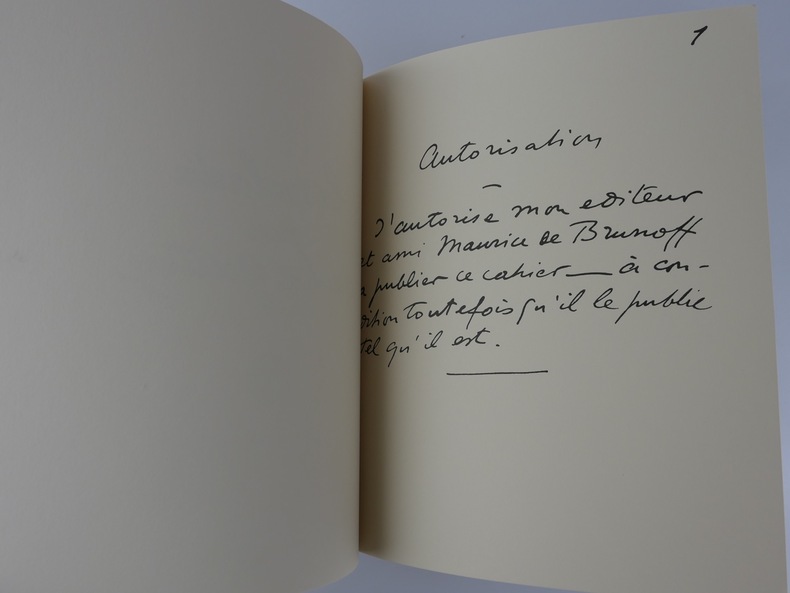 1
Autorisation
—
J'autorise mon editeur
et ami Maurice de Brunoff
a publier ce cahier — à con-
dition toutefois qu'il le publie
tel qu'il est.